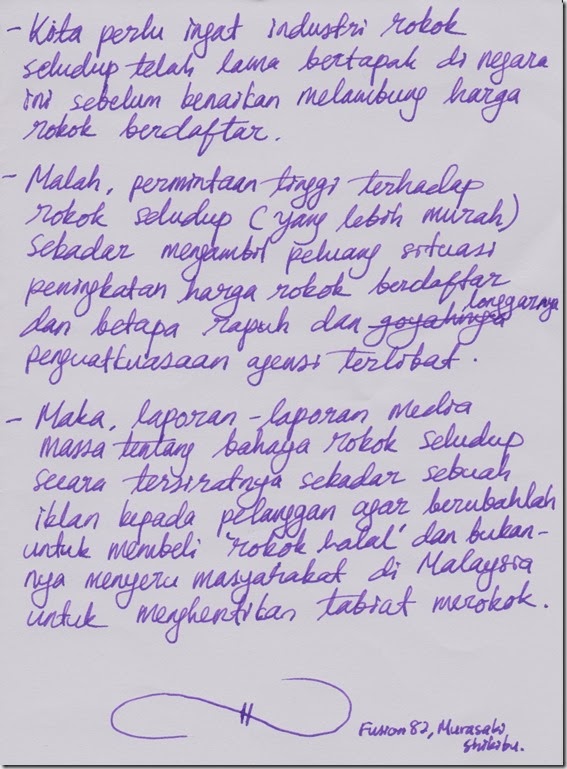 - Kita perlu ingat industri rokok
seludup telah lama bertapak di negara
ini sebelum kenaikan melambung harga
rokok berdaftar.
- Malah, permintaan tinggi terhadap
rokok seludup (yang lebih murah)
sekadar mengambil peluang situasi
peningkatan harga rokok berdaftar
dan betapa rapuh dan goyahnya longgarnya
penguatkuasaan agensi terlibat.
- Maka, laporan-laporan media
massa tentang bahaya rokok seludup
secara tersiratnya sekadar sebuah
iklan kepada pelanggan agar berubahlah
untuk membeli 'rokok halal' dan bukan-
nya menyeru masyarakat di Malaysia
untuk menghentikan tabiat merokok.
Fusion 82, Murasaki
Shikibu.